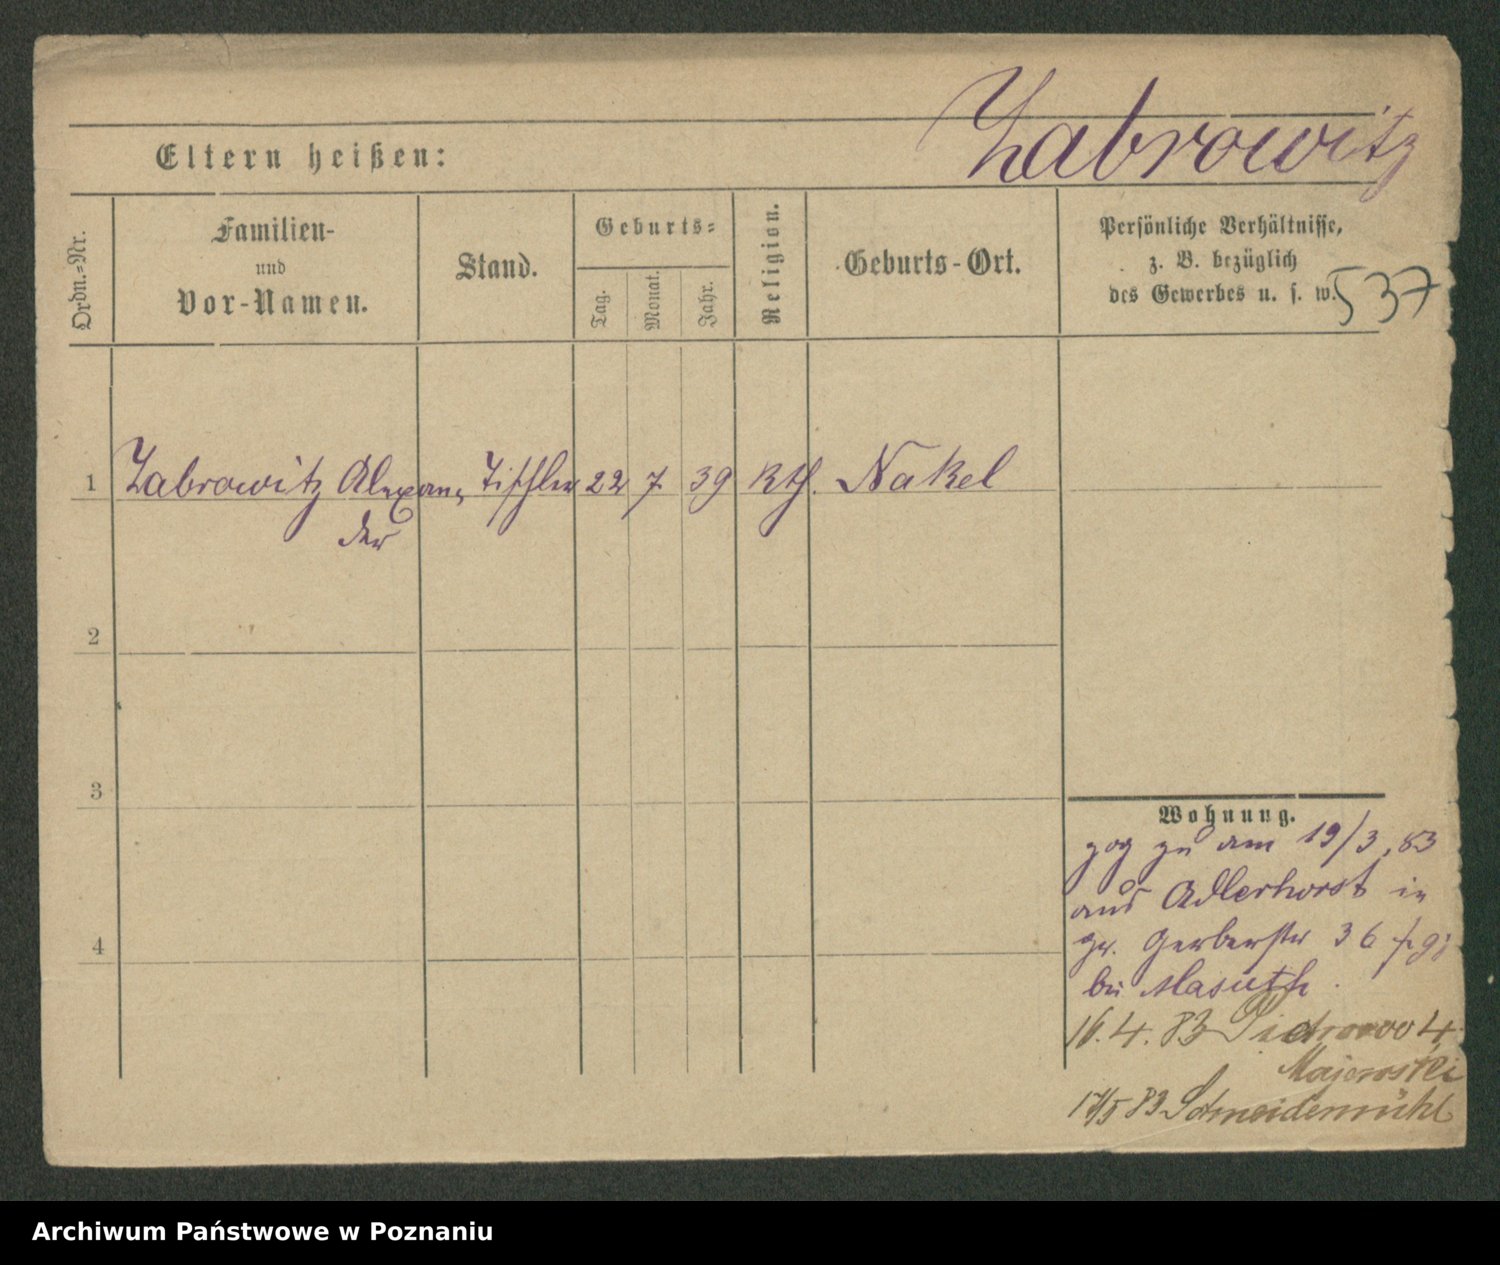 Zabrowitz
Eltern heißen:
Ordn.=Nr.
Familien-
und
Vor-Namen.
Stand.
Geburts=
Tag.
Monat.
Jahr.
Religion.
Geburts-Ort.
Persönliche Verhältnisse,
z. B. bezüglich
des Gewerbes u. s. w.
537
1 Zabrowitz Alexan= Tischler 22 7 39 kth. Nakel
der
2
3
4
Wohnung.
zog zu am 19/3. 83
aus Adlerhorst in
gr. Gerberstr 36
bei Masuth.
16. 4. 83 Piotrowo 4
Majewski
17/5 83 Schneidemühl
Archiwum Państwowe w Poznaniu